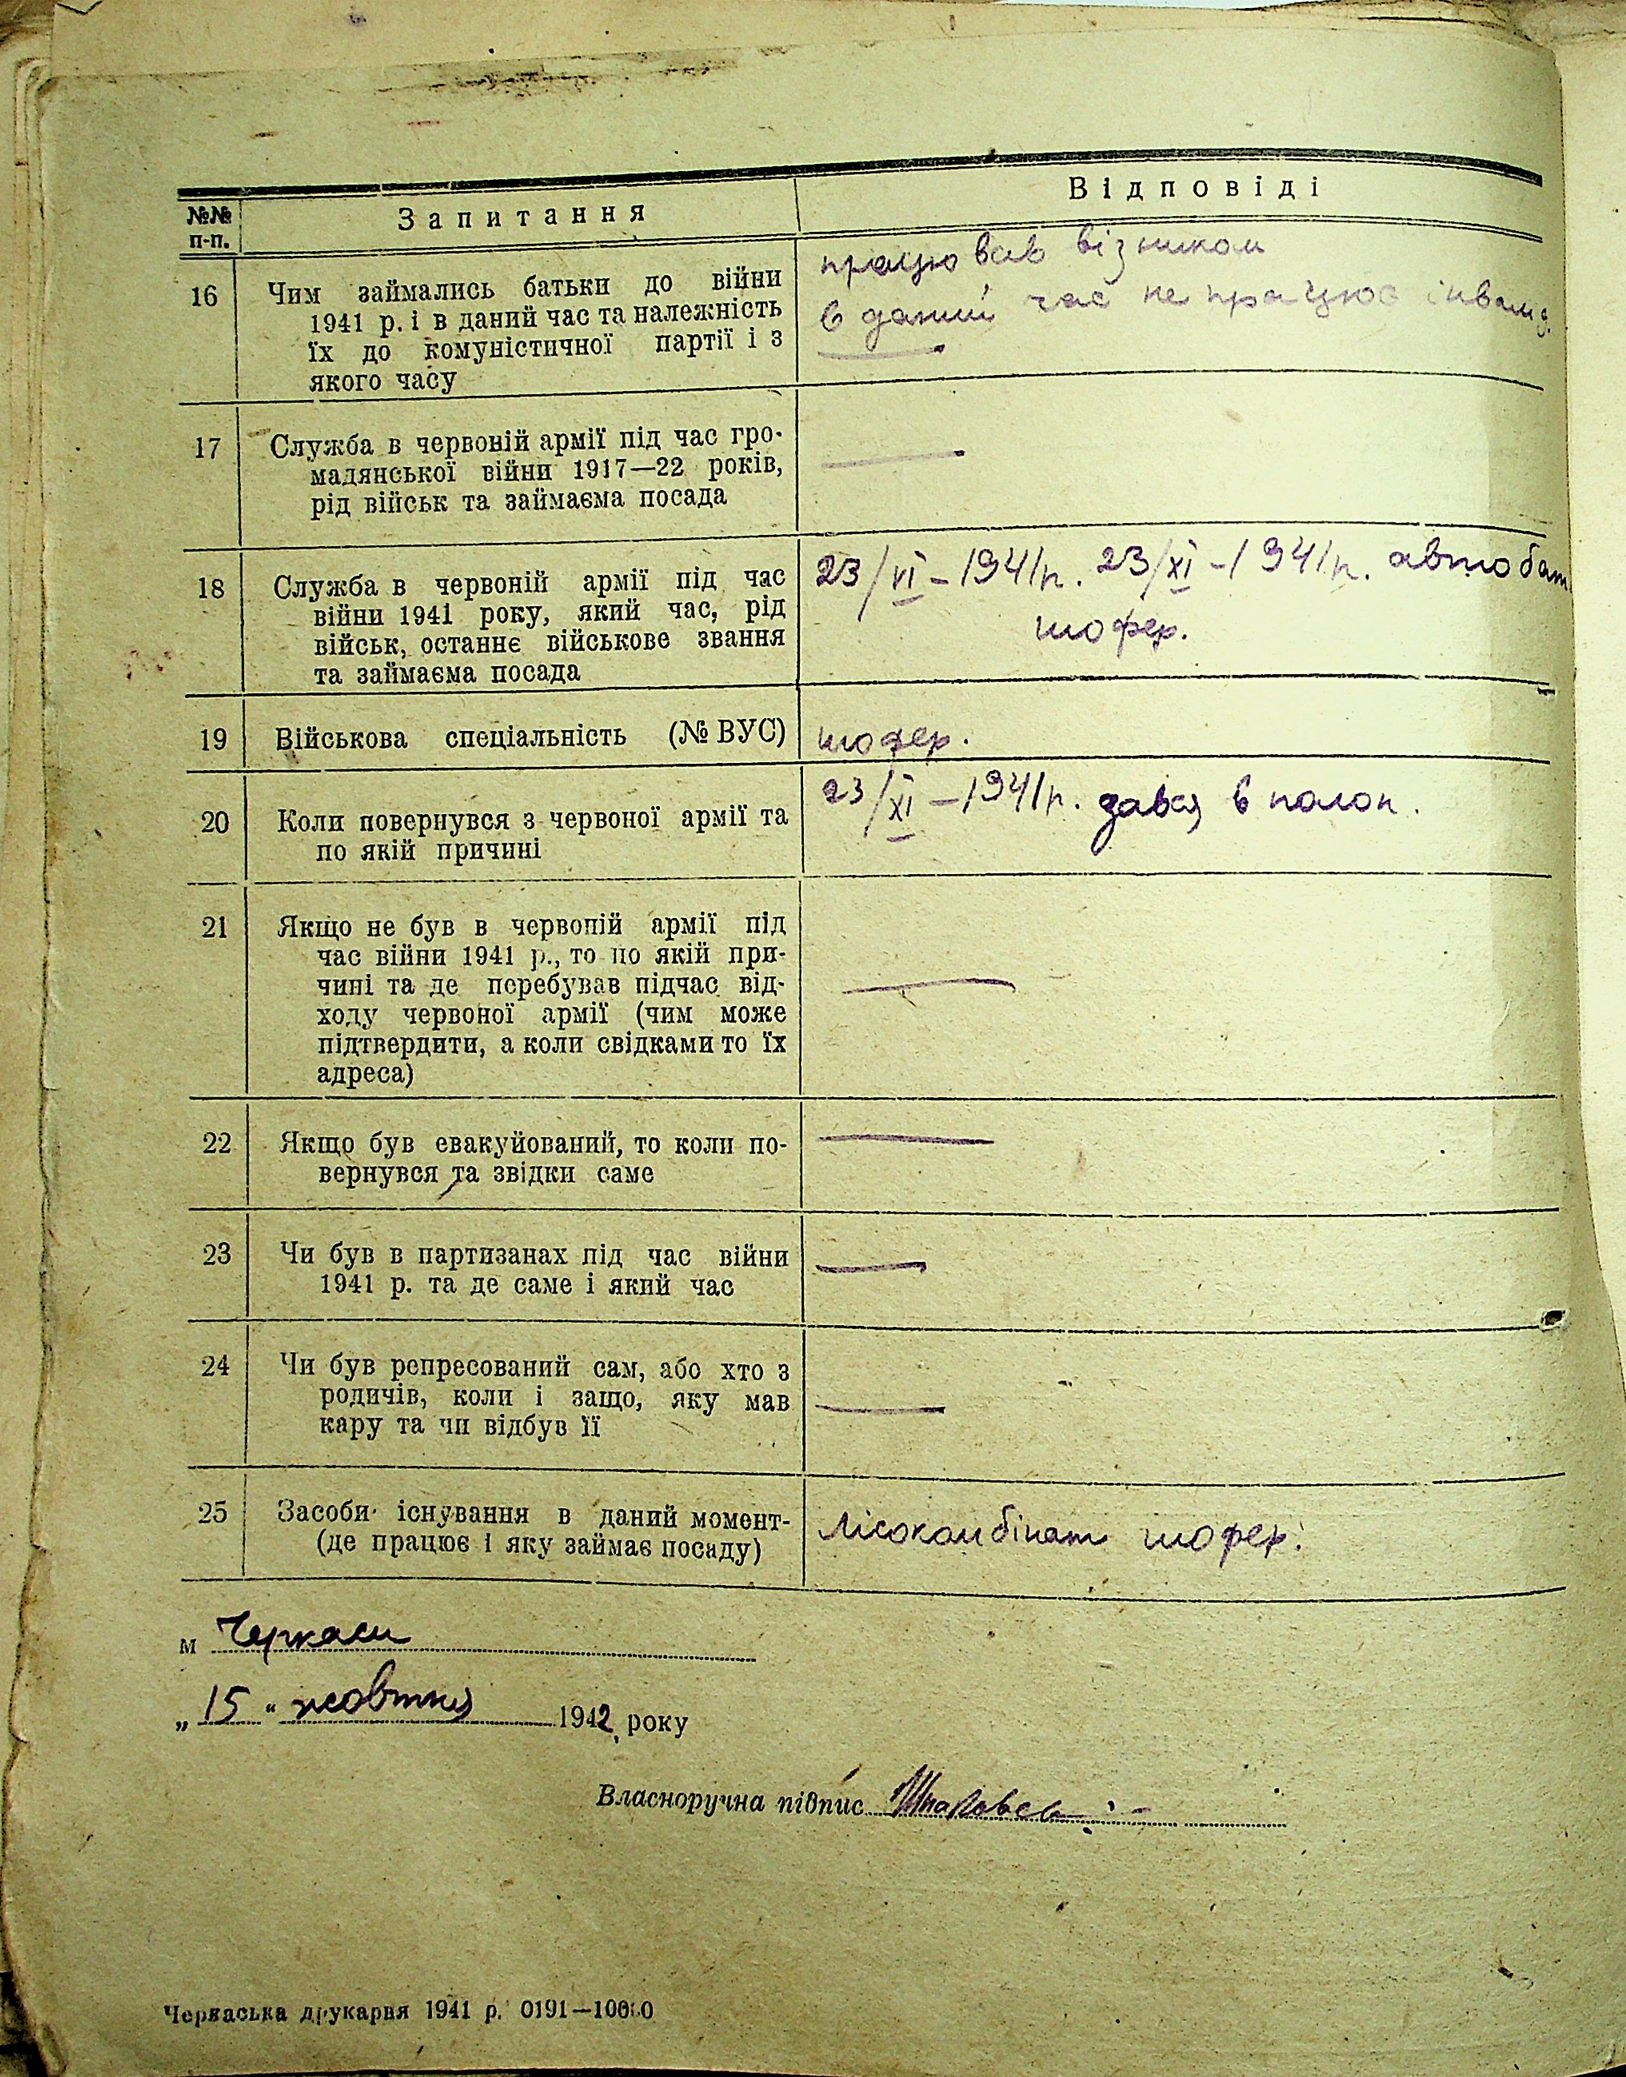 №№ п-п.
Запитання
Відповіді
16
Чим займались батьки до війни
1941 р. і в даний час та належність
їх до комуністичної партії і з
якого часу
працював візником
в даний час не працює інвалід.
17
Служба в червоній армії під час гро-
мадянської війни 1917—22 років,
рід військ та займаєма посада
18
Служба в червоній армії під час
війни 1941 року, який час, рід
військ, останнє військове звання
та займаєма посада
23/VI – 1941 р. 23/XI – 1941 р. автобат
шофер.
19
Військова спеціальність (№ ВУС)
шофер.
20
Коли повернувся з червоної армії та
по якій причині
23/XI – 1941 р. здався в полон.
21
Якщо не був в червоній армії під
час війни 1941 р., то по якій при-
чині та де перебував підчас від-
ходу червоної армії (чим може
підтвердити, а коли свідками то їх
адреса)
22
Якщо був евакуйований, то коли по-
вернувся та звідки саме
23
Чи був в партизанах під час війни
1941 р. та де саме і який час
24
Чи був репресований сам, або хто з
родичів, коли і защо, яку мав
кару та чи відбув її
25
Засоби існування в даний момент-
(де працює і яку займає посаду)
Лісокомбінат шофер.
м Черкаси
„ 15 " жовтня 1942 року
Власноручна підпис
Черкаська друкарня 1941 р. 0191—10000